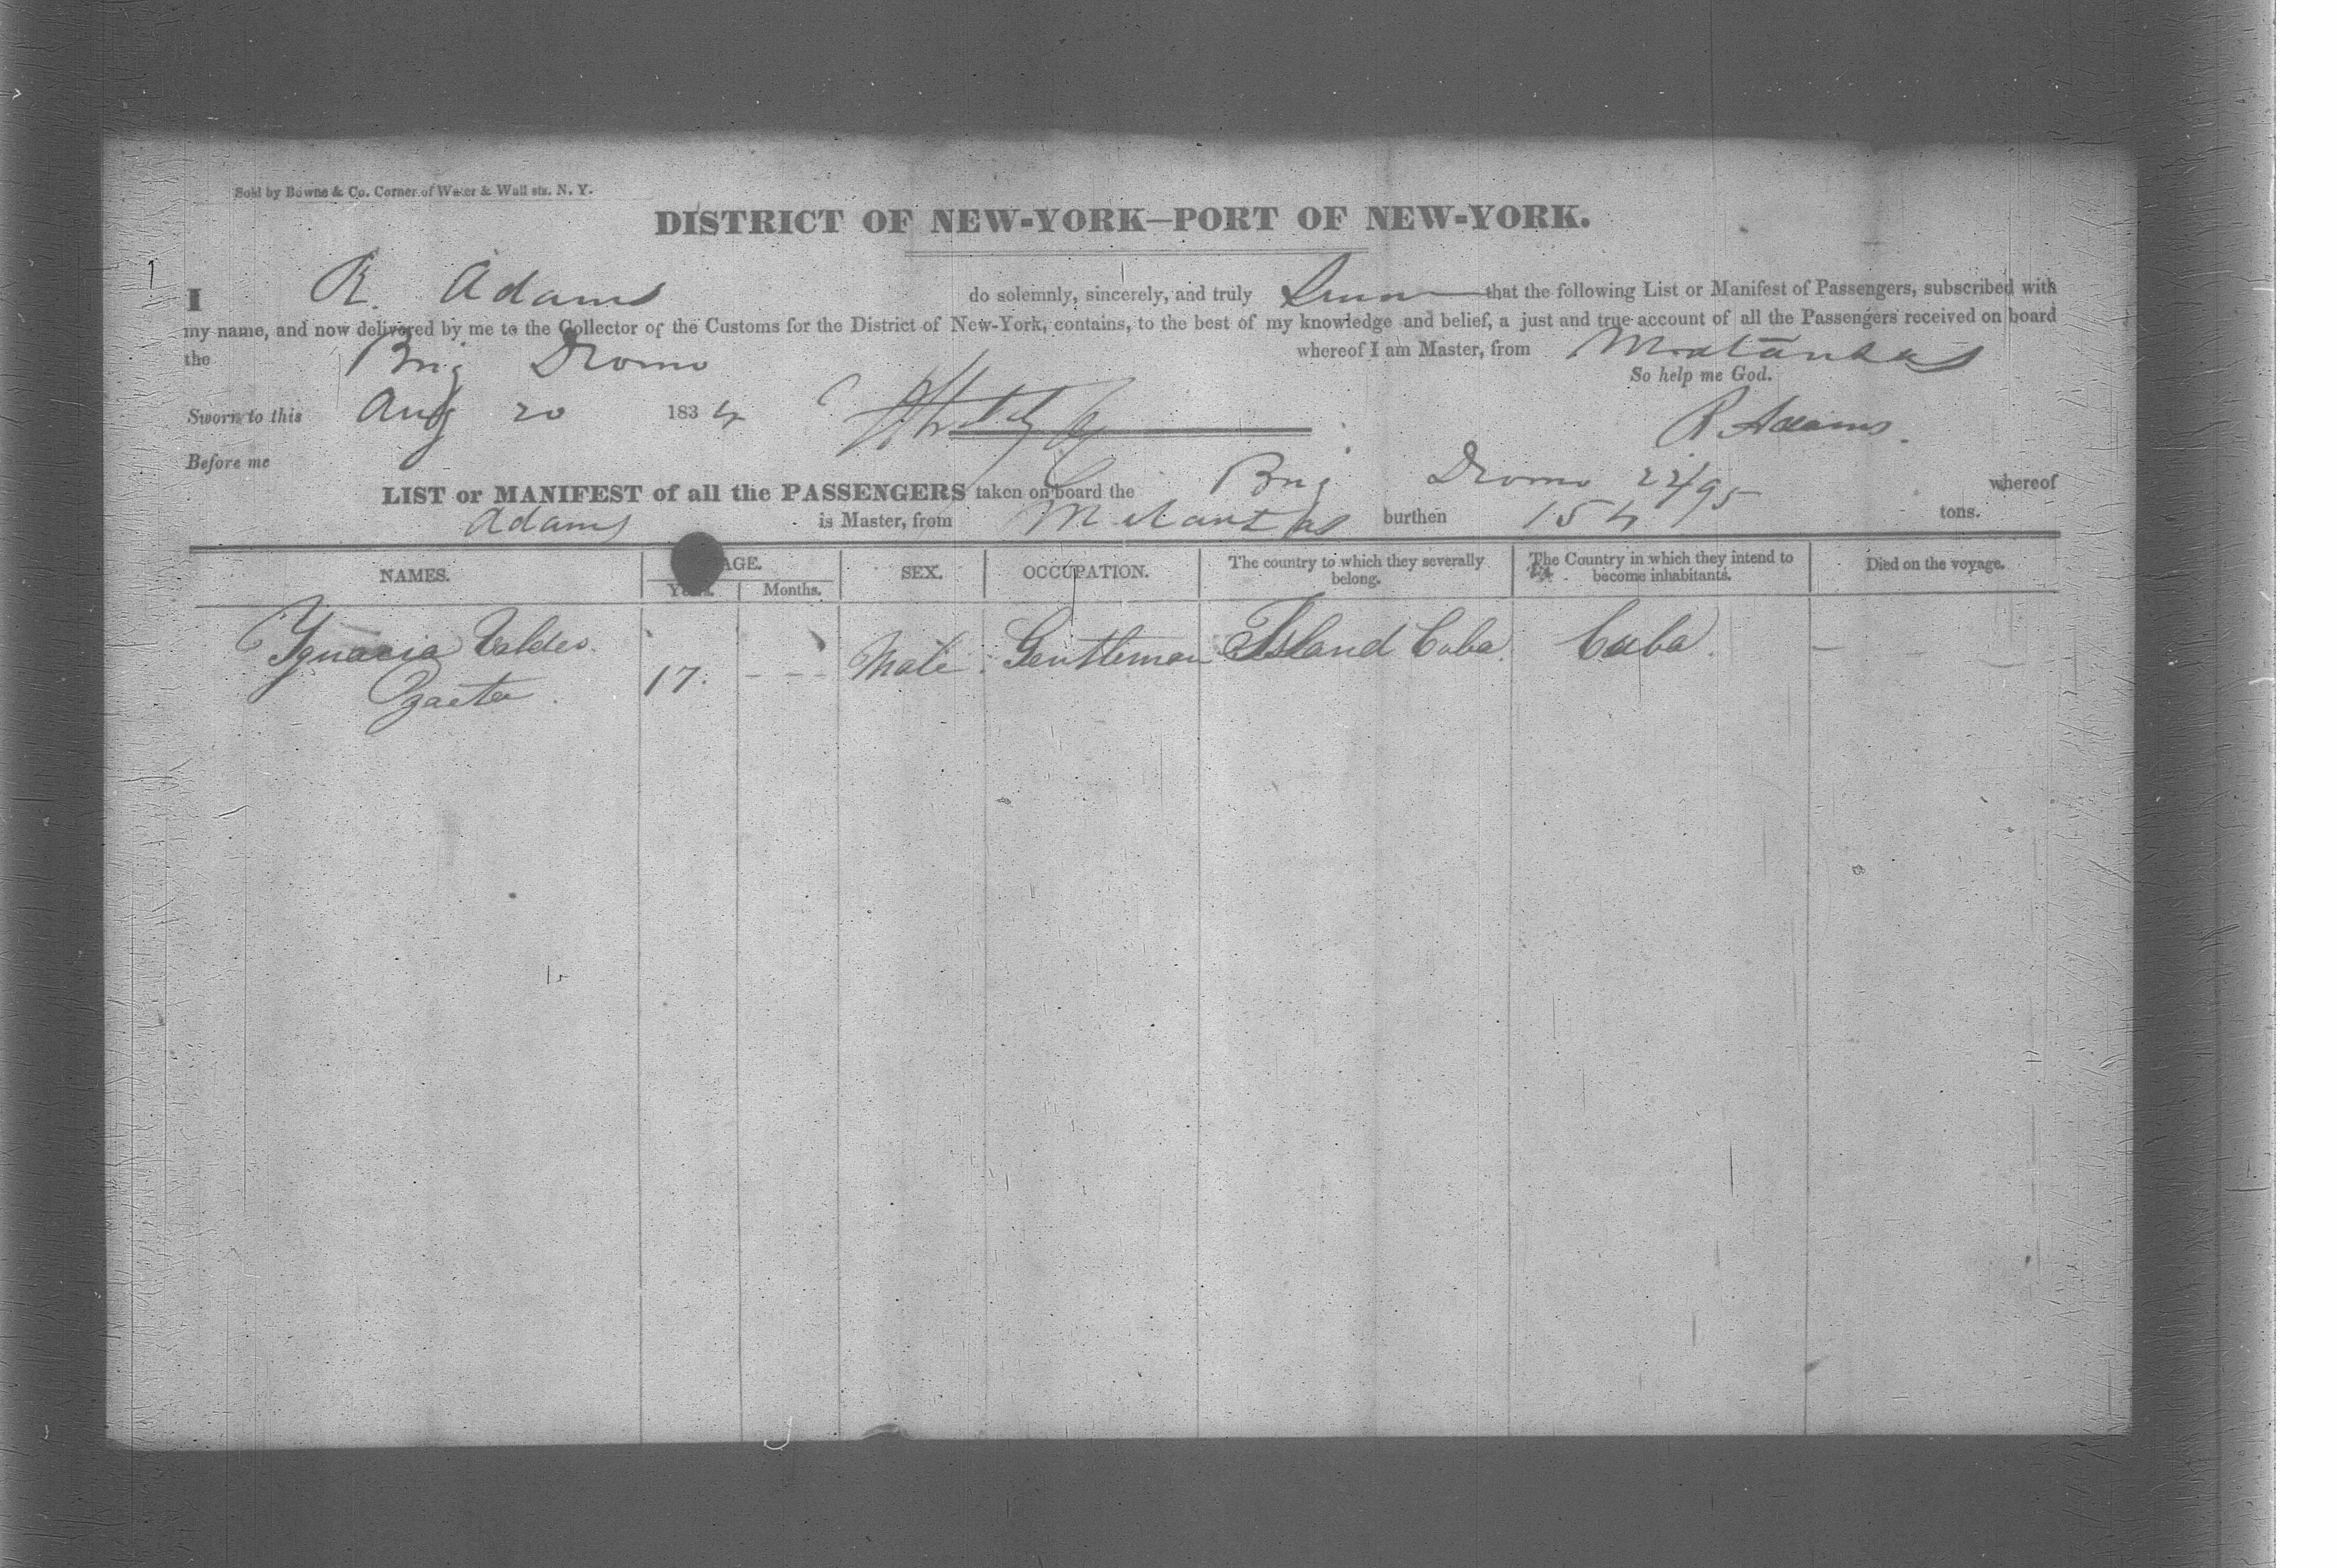 Sold by Bowne & Co. Corner of Water & Wall sts. N. Y.
DISTRICT OF NEW-YORK—PORT OF NEW-YORK.
I R. Adams do solemnly, sincerely, and truly that the following List or Manifest of Passengers, subscribed with
my name, and now delivered by me to the Collector of the Customs for the District of New-York, contains, to the best of my knowledge and belief, a just and true account of all the Passengers received on board
the Brig Dromo whereof I am Master, from Matanzas
So help me God.
Sworn to this Aug 20 1834
R Adams.
Before me
LIST or MANIFEST of all the PASSENGERS taken on board the Brig Dromo whereof
Adams is Master, from Matanzas burthen 154 22/95 tons.
NAMES. AGE. SEX. OCCUPATION. The country to which they severally belong. The Country in which they intend to become inhabitants. Died on the voyage.
Years. Months.
Ygnacia Valdes. Male. Gentleman Island Cuba. Cuba. —
17. - - -